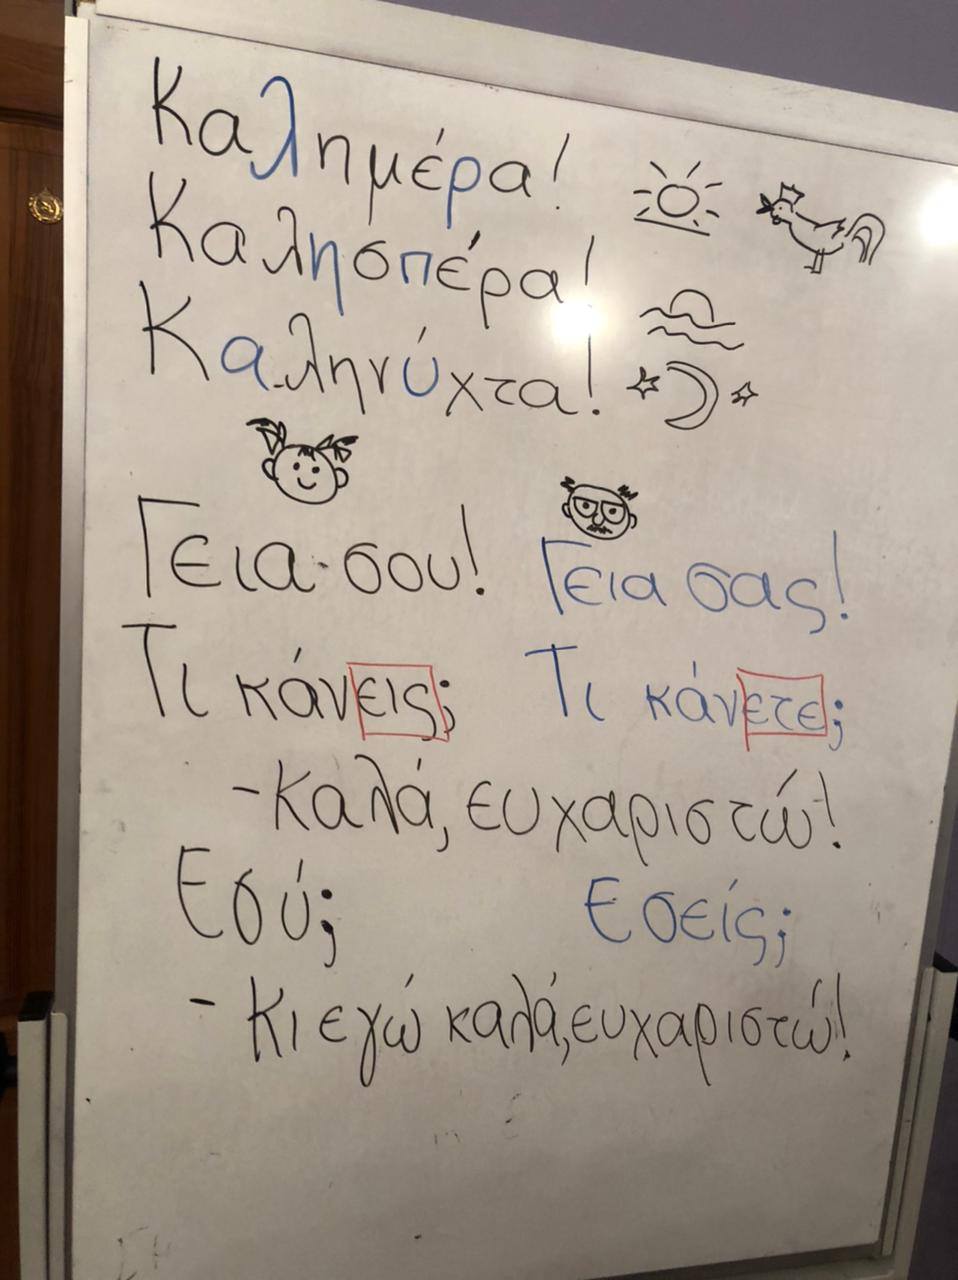 Καλημέρα!
Καλησπέρα!
Καληνύχτα!
Γεια σου! Γεια σας!
Τι κάνεις; Τι κάνετε;
-Καλά, ευχαριστώ!
Εσύ; Εσείς;
- Κι εγώ καλά, ευχαριστώ!